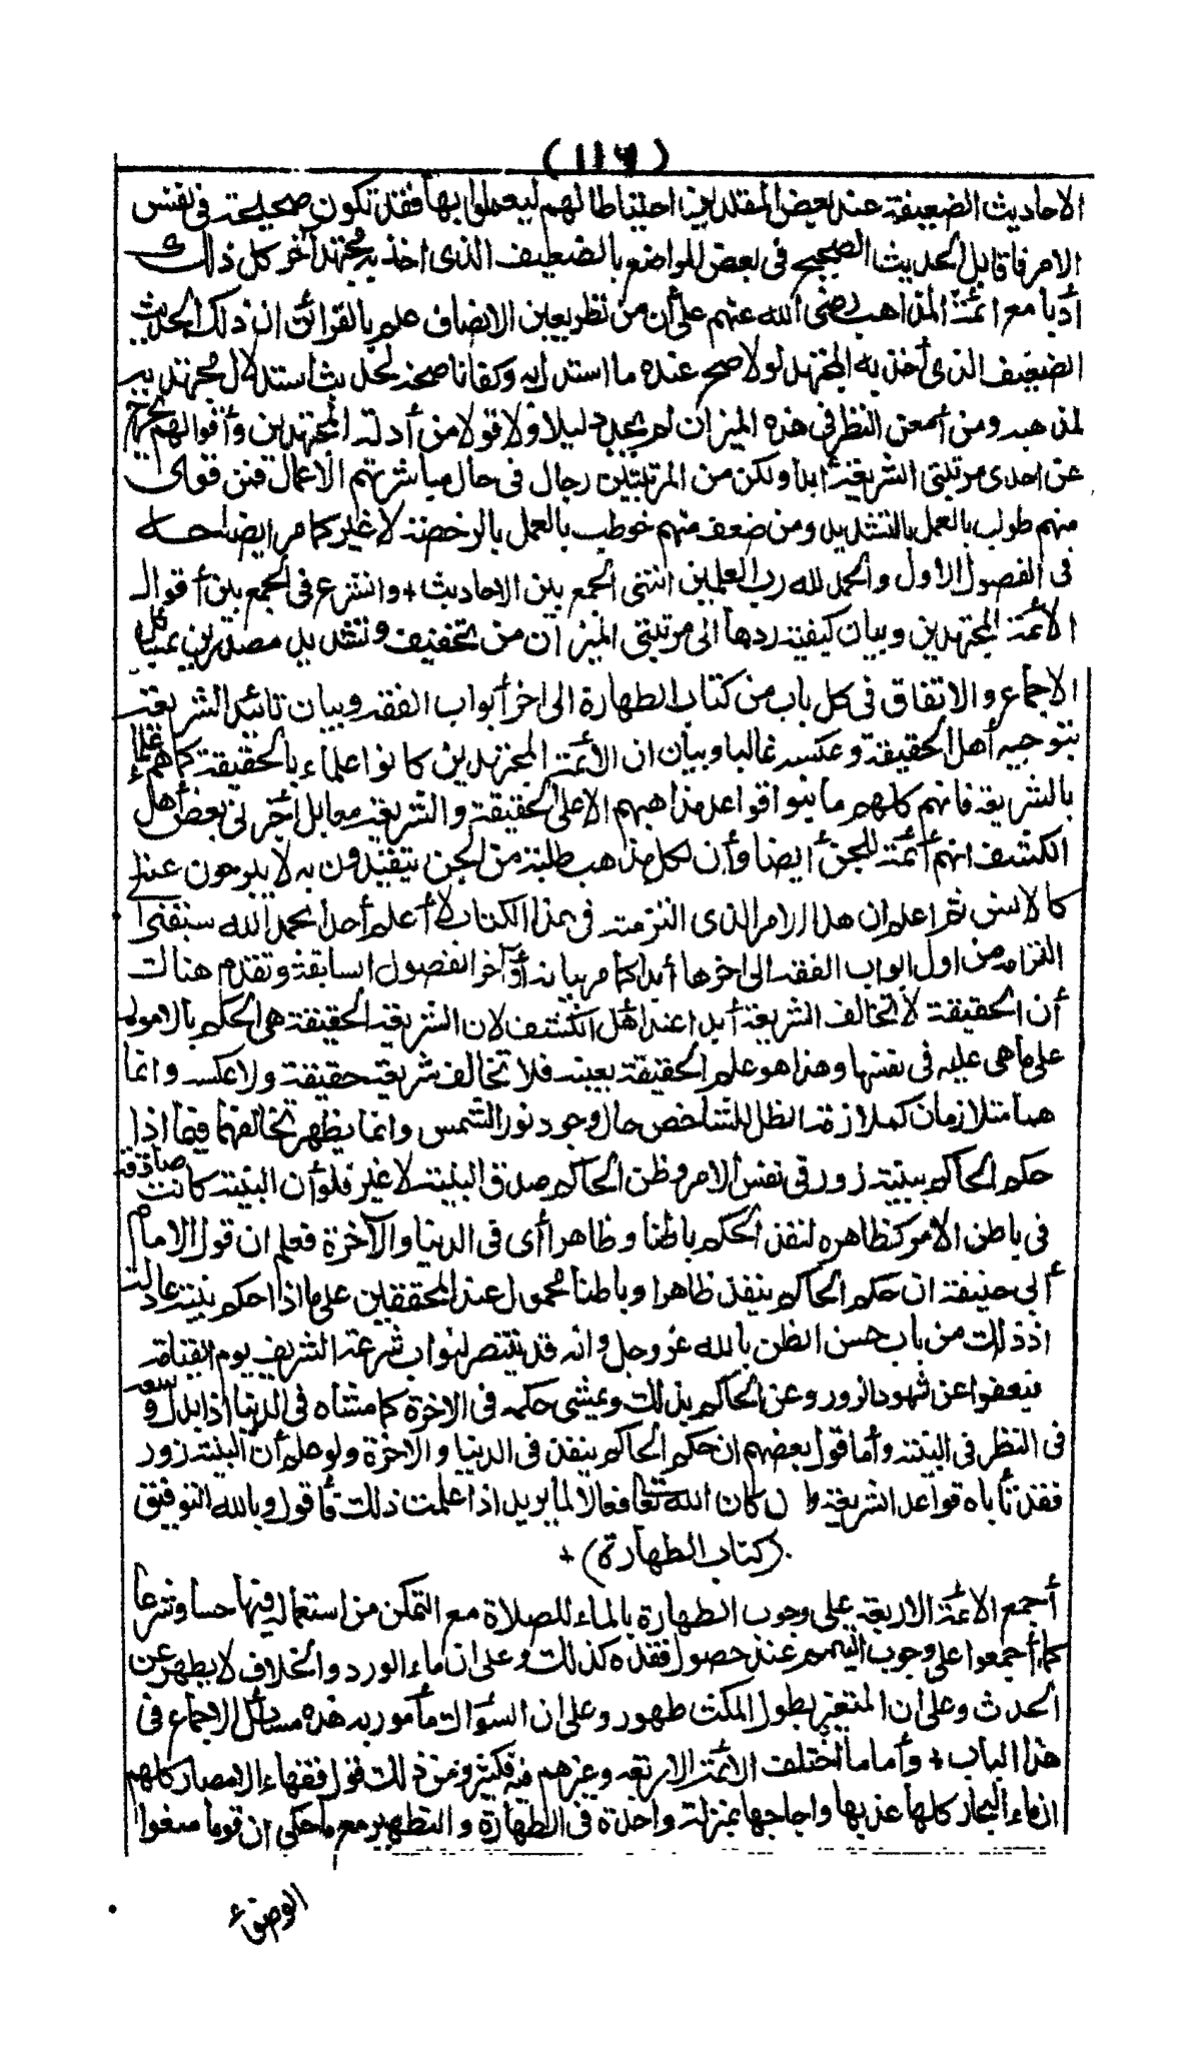 (١١٦)
الاحاديث الضعيفة عند بعض المقلدين احتياطا لهم ليعملوا بها فقد تكون صحيحة في نفس
الامر فاقابل الحديث الصحيح في بعض المواضع بالضعيف الذى اخذ به مجتهد آخر كل ذلك
أدبا مع ائمة المذاهب رضى الله عنهم على أن من نظر بعين الانصاف علم بالقرائن ان ذلك الحديث
الضعيف الذى أخذ به المجتهد لولا صح عنده ما استدل به وكفانا صحة لحديث استدلال مجتهد به
لمذهبه ومن أمعن النظر في هذه الميزان لم يجد دليلا ولا قولا من أدلة المجتهدين وأقوالهم يخرج
عن احدى مرتبتى الشريعة ابدا ولكن من المرتبتين رجال في حال مباشرتهم الأعمال فمن قوى
منهم طولب بالعمل بالتشديد ومن ضعف منهم خوطب بالعمل بالرخصة لاغير كما مر ايضاحه
فى الفصول الاول والحمد لله رب العلمين انتهى الجمع بين الاحاديث + وانشرع فى الجمع بين أقوال
الأئمة المجتهدين وبيان كيفية ردها الى مرتبتى الميزان من تخفيف وتشديد مصدرين بمسائل
الاجماع والاتفاق فى كل باب من كتاب الطهارة الى اخر أبواب الفقه وبيان تائيد الشريعة
بتوجيه أهل الحقيقة وعكسه غالبا وبيان ان الأئمة المجتهدين كانوا علماء بالحقيقة كما هم علماء
بالشريعة فانهم كلهم ما بنوا قواعد مذاهبهم الا على الحقيقة والشريعة معابل أخبرنى بعض أهل
الكشف انهم أئمة للجن أيضا وأن لكل مذهب طلبة من الجن يتقيدون به لا يبرحون عنه
كالانس ثم اعلم ان هذا الامر الذى التزمته فى هذا الكتاب لا أعلم أحدا بحمد الله سبقنى الى
التزامه من اول ابواب الفقه الى اخرها أبدا كما مر بيانه أواخر الفصول السابقة وتقدم هناك
أن الحقيقة لا تخالف الشريعة أبدا عند أهل الكشف لان الشريعة الحقيقة هى الحكم بالامور
على ما هى عليه فى نفسها وهذا هو علم الحقيقة بعينه فلا تخالف شريعة حقيقة ولا عكسه وانما
هما متلازمان كملازمة الظل للشاخص حال وجود نور الشمس وانما يظهر تخالفهما فيما اذا
حكم الحاكم ببينة زور فى نفس الامر وظن الحاكم صدق البينة لاغير فلو أن البينة كانت صادقة
فى باطن الأمر كظاهره لنفذ الحكم باطنا وظاهرا أى فى الدنيا والآخرة فعلم ان قول الامام
أبى حنيفة ان حكم الحاكم ينفذ ظاهرا وباطنا محمول عند المحققين على ما اذا حكم ببينة عادلة
اذ ذلك من باب حسن الظن بالله عز وجل وانه قد ينتصر لنواب شرعه الشريف يوم القيامة
فيعفوا عن شهود الزور وعن الحاكم بذلك ويمشى حكمه فى الاخرة كما مشاه فى الدنيا اذا بذل وسعه
فى النظر فى البينة وأما قول بعضهم ان حكم الحاكم ينفذ فى الدنيا والاخرة ولو علم أن البينة زور
فقد تأباه قواعد الشريعة وان كان الله تعالى فعالا لما يريد اذا علمت ذلك فأقول وبالله التوفيق
(كتاب الطهارة) +
أجمع الأئمة الاربعة على وجوب الطهارة بالماء للصلاة مع التمكن من استعماله فيها حسا وشرعا
كما أجمعوا على وجوب التيمم عند حصول فقده كذلك وعلى ان ماء الورد والخلاف لا يطهر عن
الحدث وعلى ان المتغير بطول المكث طهور وعلى ان السواك مأمور به هذه مسائل الاجماع فى
هذا الباب + وأما ما اختلف الأئمة الاربعة وغيرهم فيه فكثير ومن ذلك قول فقهاء الامصار كلهم
ان ماء البحار كلها عذبها واجاجها بمنزلة واحدة فى الطهارة والتطهير مع ما حكى ان قوما منعوا
الوضوء